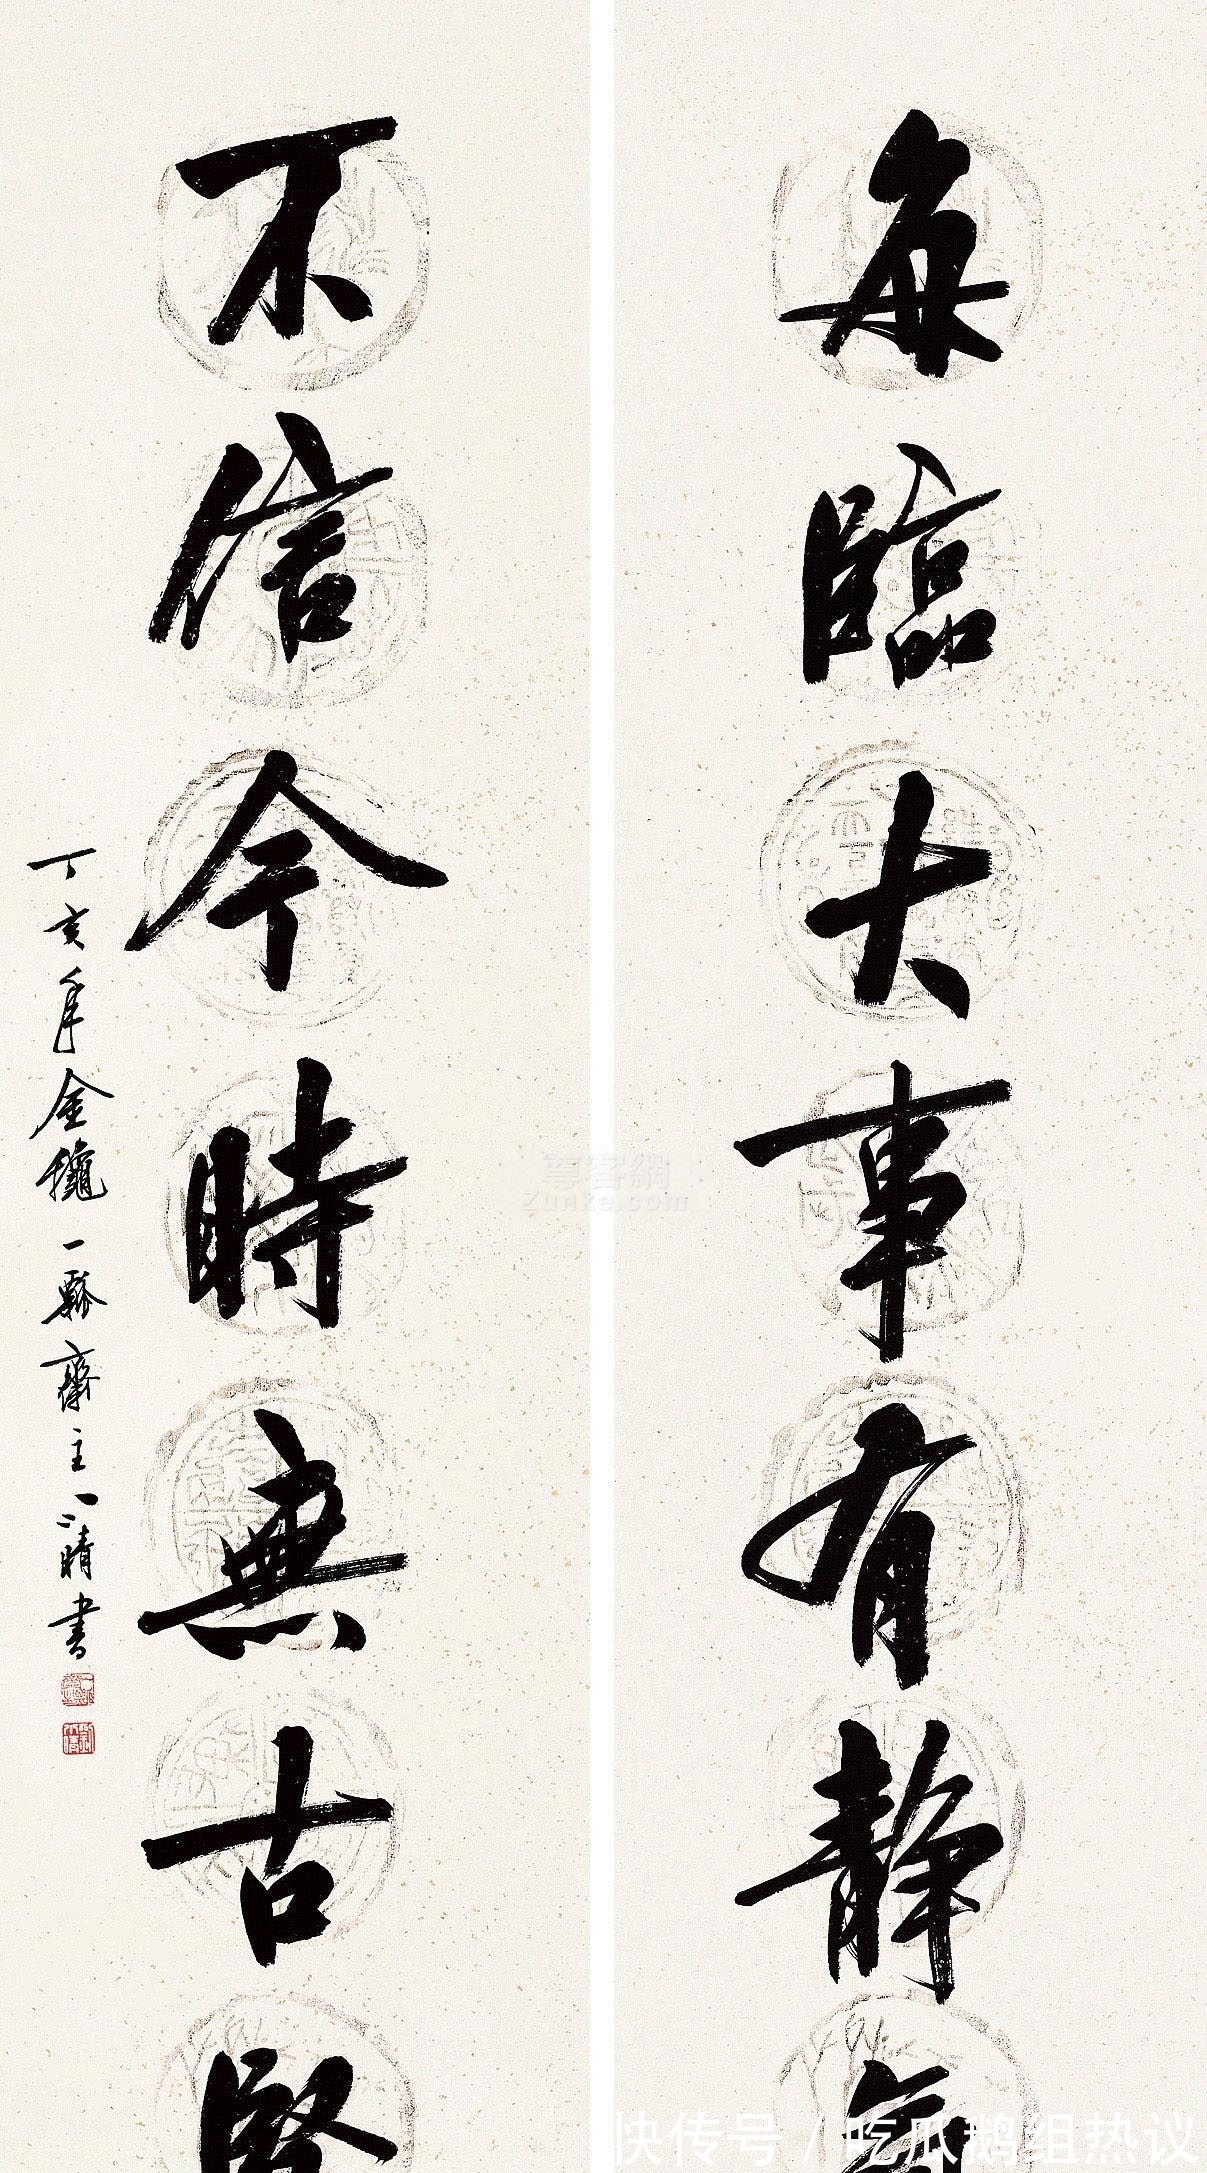 每臨大事有静氣
不信今時無古賢
丁亥年金秋一瓢齋主一晴書
尊客網
Zunke.com
快传号 / 吃瓜鹅组热议